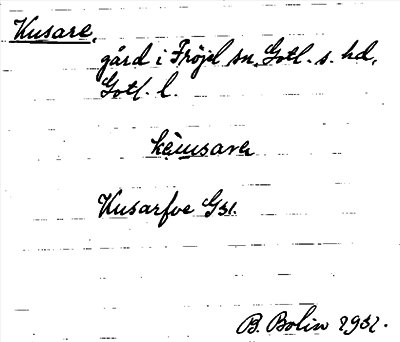 Kusare,
gård i Fröjel sn, Gotl. s. hd,
Gotl. l.
Kusarfve GSL.
B. Bolin 1932.